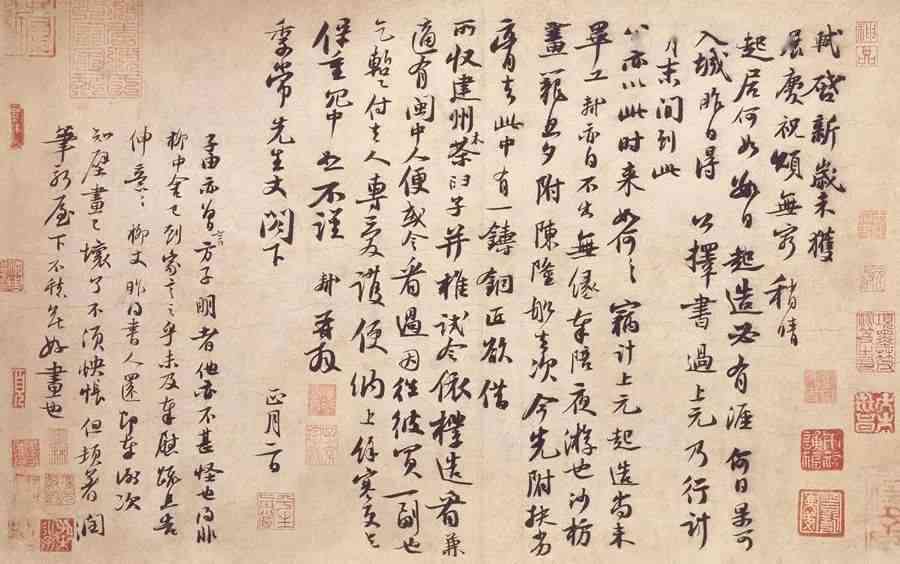 軾啓新歲未獲
展慶祝頌無窮稍晴
起居何如數日起造必有涯何日果可
入城昨日得 公擇書過上元乃行計
月末間到此
公亦以此時来如何々竊計上元起造尚未
畢工軾亦自不出無緣奉陪夜游也沙枋
畫籠旦夕附陳隆船去次今先附扶劣
膏去此中有一鑄銅匠欲借
所收建州木茶臼子并椎試令依樣造看兼
適有閩中人便或令看過因往彼買一副也
乞暫付去人專愛護便納上餘寒更乞
保重冗中恕不謹 軾再拜
季常先生丈閤下 正月二日
子由亦曾言方子明者他亦不甚怪也得非
柳中舍已到家言之乎未及奉慰疏且告
伸意々柳丈昨得書人還即奉謝次
知壁畫已壞了不須怏悵但頓著潤
筆新屋下不愁無好畫也